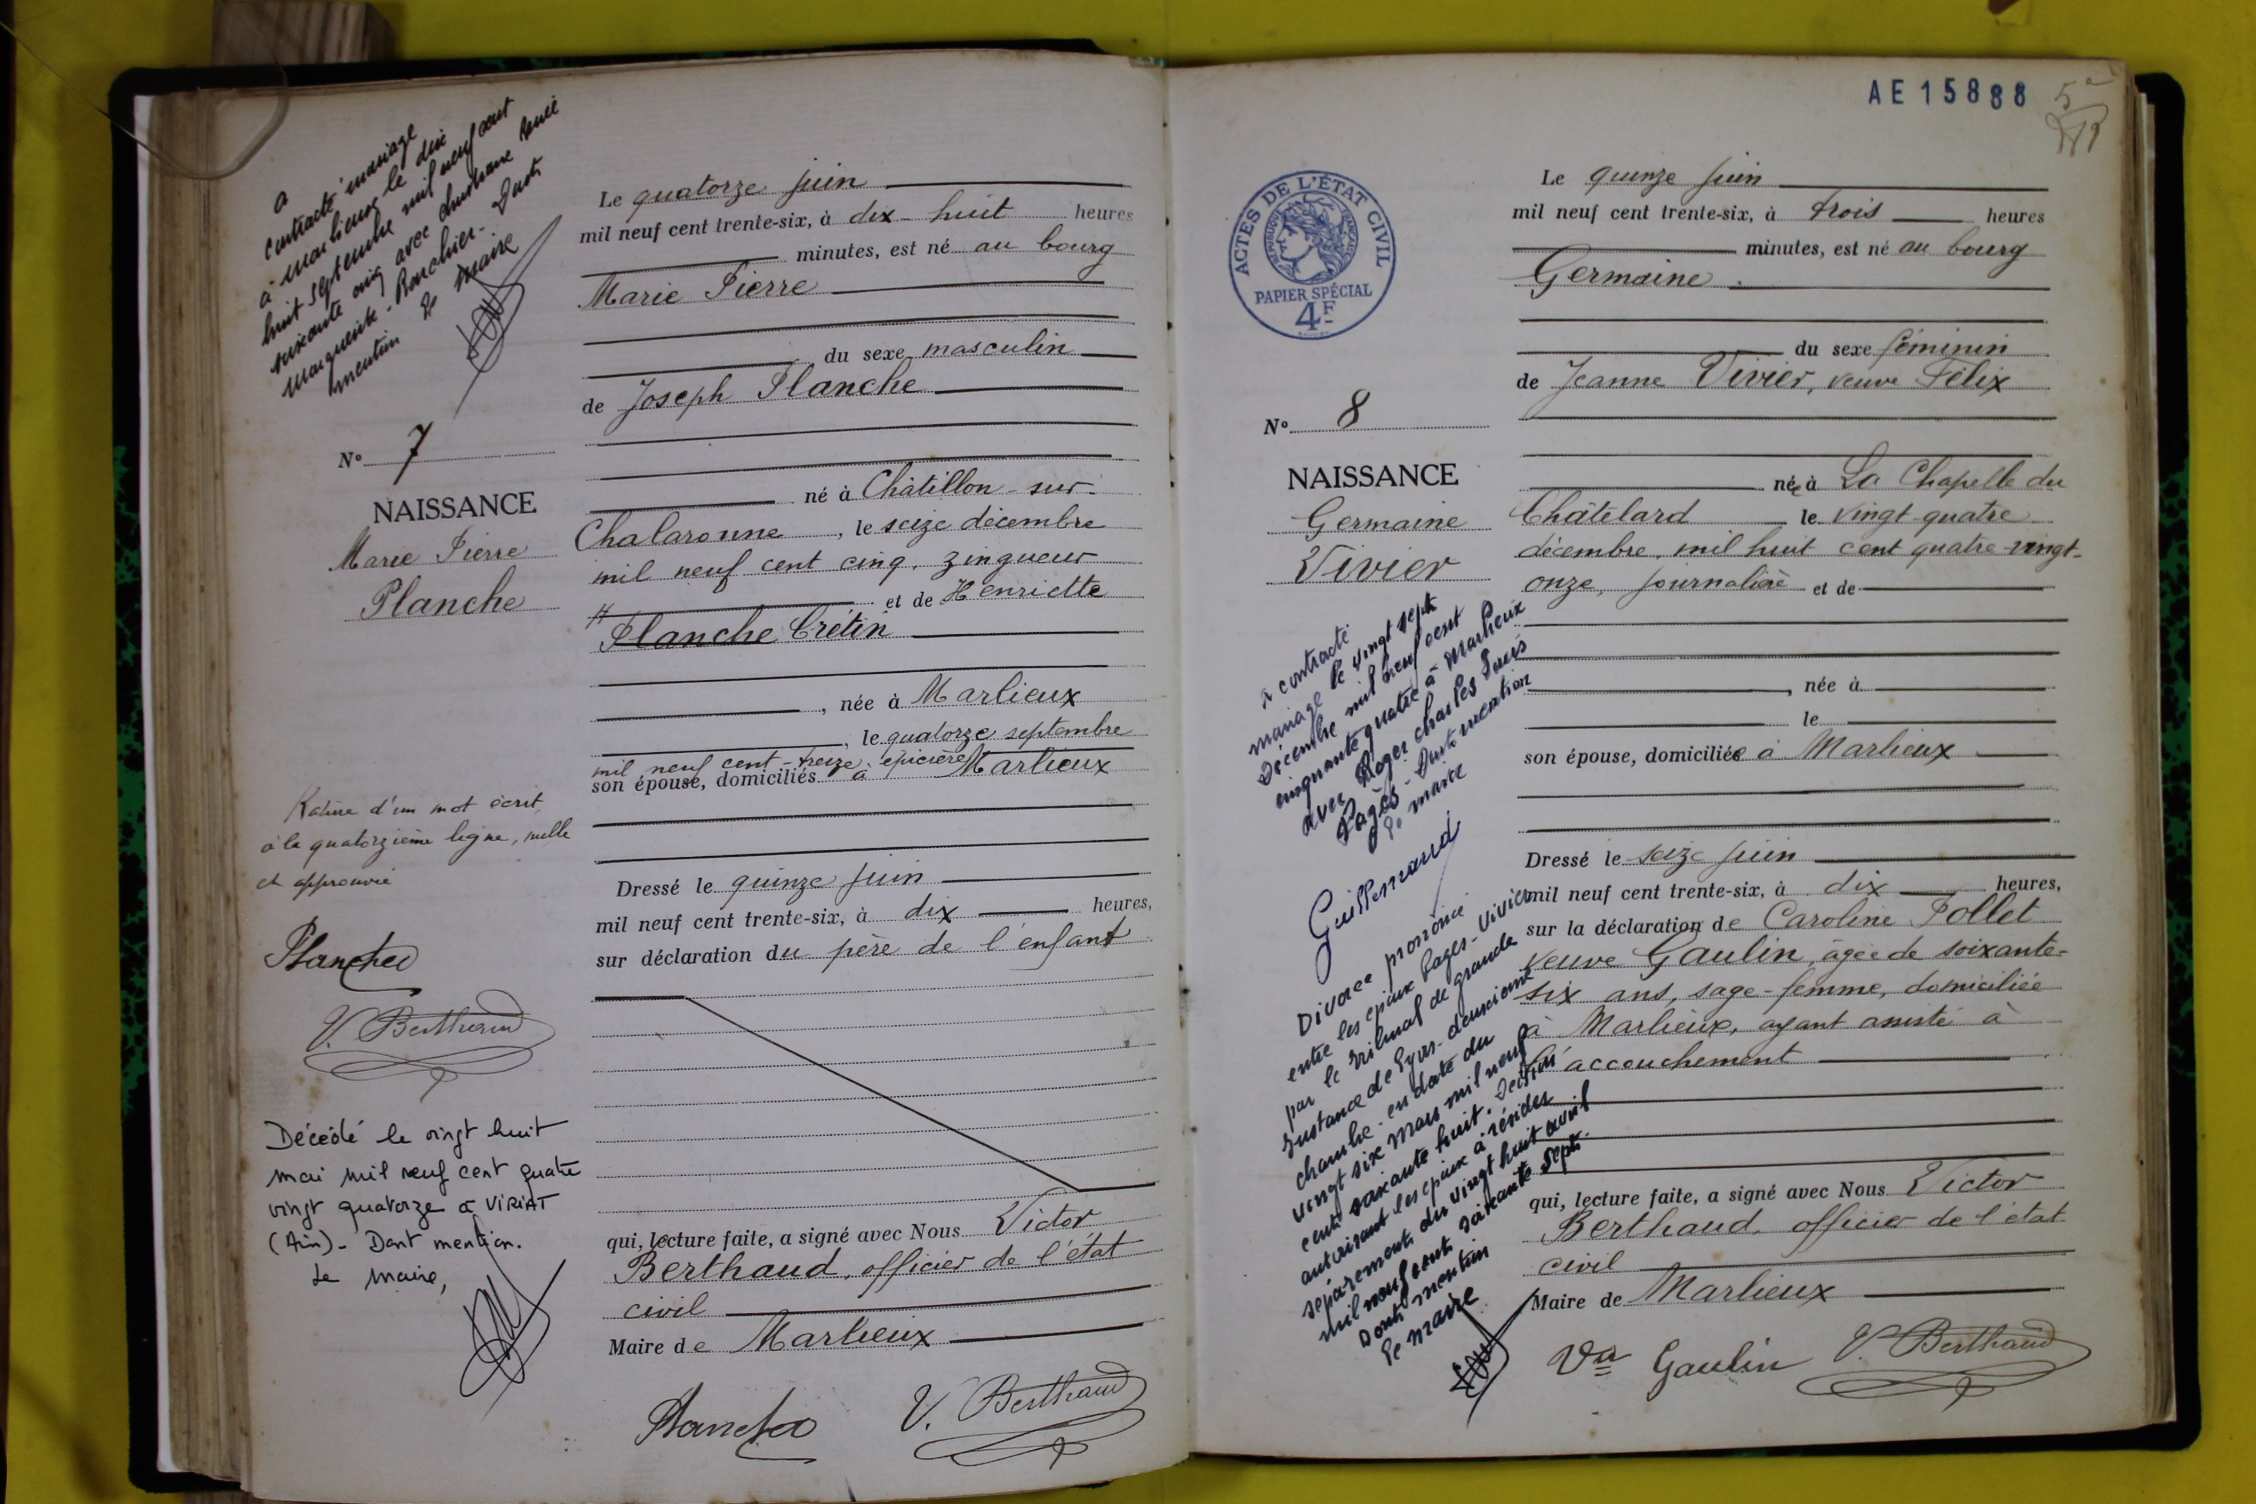 a
contracté mariage
à Marlieux le dix
huit septembre mil neuf cent
soixante cinq avec
Marguerite - Ronchier - Dont
mention Le Maire
N° 7
NAISSANCE
Marie Pierre
Planche
Rature d'un mot écrit
à la quatorzième ligne, nulle
et approuvée
Planche
V. Berthaud
Décédé le vingt huit
mai mil neuf cent quatre
vingt quatorze à VIRIAT
(Ain) - Dont mention.
Le Maire,
Le quatorze juin
mil neuf cent trente-six, à dix-huit heures
minutes, est né au bourg
Marie Pierre
du sexe masculin
de Joseph Planche
né à Châtillon-sur-
Chalaronne, le seize décembre
mil neuf cent cinq, zingueur
et de Henriette
Planche Crétin
, née à Marlieux
, le quatorze septembre
mil neuf cent-treize, épicière
son épouse, domiciliés à Marlieux
Dressé le quinze juin
mil neuf cent trente-six, à dix heures,
sur déclaration du père de l'enfant
qui, lecture faite, a signé avec Nous Victor
Berthaud, officier de l'état
civil
Maire de Marlieux
Planche V. Berthaud
AE15888
ACTES DE L'ÉTAT CIVIL
RÉPUBLIQUE FRANÇAISE
PAPIER SPÉCIAL
4F
N° 8
NAISSANCE
Germaine
Vivier
a contracté
mariage le vingt sept
Décembre mil neuf cent
cinquante quatre à Marlieux
avec Roger Charles Louis
Pagès - Dont mention
Le maire
Guillemaud
Divorce prononcé
entre les époux Pagès-Vivier
par le Tribunal de grande
Instance de Lyon - deuxième
chambre - en date du
vingt six Mars mil neuf
cent soixante huit. Décision
autorisant les époux à résider
séparément du vingt huit avril
mil neuf cent soixante sept.
Dont mention
Le Maire
Le quinze juin
mil neuf cent trente-six, à trois heures
minutes, est né au bourg
Germaine
du sexe féminin
de Jeanne Vivier, veuve Félix
née à La Chapelle du
Châtelard le vingt-quatre
décembre mil huit cent quatre-vingt-
onze, journalière et de
, née à
le
son épouse, domiciliée à Marlieux
Dressé le seize juin
mil neuf cent trente-six, à dix heures,
sur la déclaration de Caroline Pollet
veuve Gaulin, âgée de soixante-
six ans, sage-femme, domiciliée
à Marlieux, ayant assisté à
l'accouchement
qui, lecture faite, a signé avec Nous Victor
Berthaud, officier de l'état
civil
Maire de Marlieux
Vve Gaulin V. Berthaud